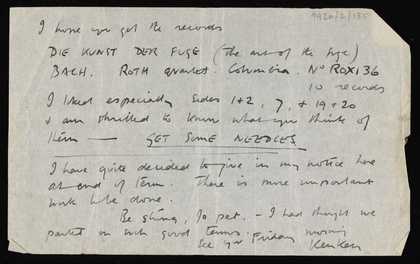 9420/2/135
I hope you get the records
DIE KUNST DER FUGE (the art of the fuge)
BACH. ROTH quartet. Columbia. No ROX136
10 records
I liked especially sides 1+2, 7, + 19+20
+ am thrilled to know what you think of
them — GET SOME NEEDLES
I have quite decided to give in my notice here
at end of term. There is more important
work to be done.
Be strong, Jo pet. - I had thought we
parted on such good terms.
See yr Friday